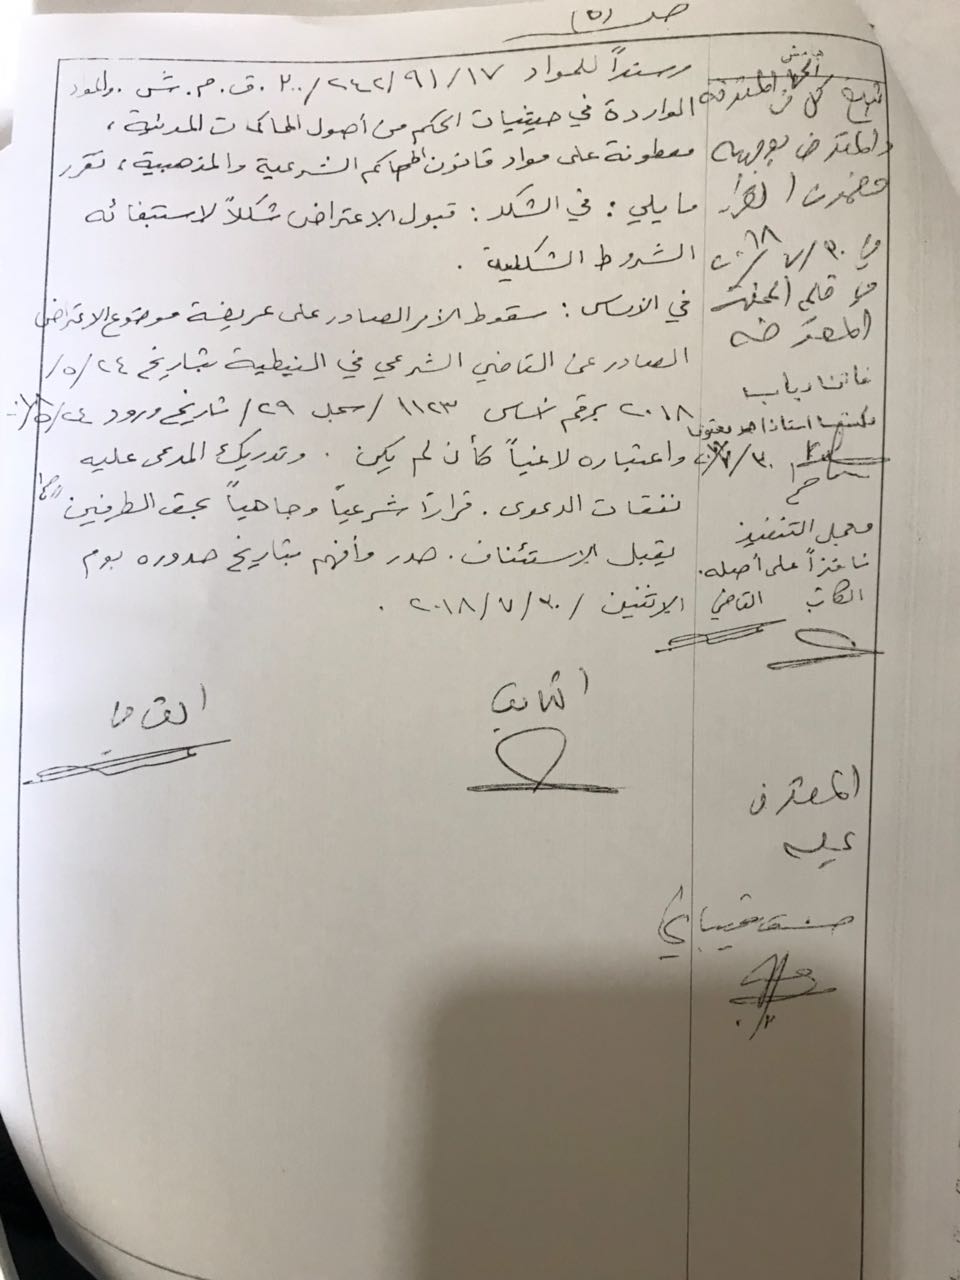 ص (٥)
وسنداً للمواد ١٧/ ٩١/ ٢٤٢/ ٢٠٠ ق.م.ش. والمواد
الواردة في حيثيات الحكم من أصول المحاكمات المدنية،
معطوفة على مواد قانون المحاكم الشرعية والمذهبية، تقرر
ما يلي: في الشكل: قبول الاعتراض شكلاً لاستيفائه
الشروط الشكلية.
في الأساس: سقوط الأمر الصادر على عريضة موضوع الاعتراض
الصادر عن القاضي الشرعي في النبطية بتاريخ ٢٤/ ٥/
٢٠١٨ برقم أساس ١١٢٣/ سجل ٢٩/ تاريخ ورود ٢٤/٥/
واعتباره لاغياً كأن لم يكن. وتدريك المدعى عليه
نفقات الدعوى. قراراً شرعياً وجاهياً بحق الطرفين
يقبل الاستئناف. صدر وأفهم بتاريخ صدوره يوم
الاثنين ٣٠/ ٧/ ٢٠١٨.
الكاتب
القاضي
هامش
تبلغ كل من المعترضة
والمعترض بوجهه
مضمون القرار
في ٣٠/ ٧/ ٢٠١٨
المعترضة
معجل التنفيذ
نافذاً على أصله.
الكاتب القاضي
المعترض
عليه